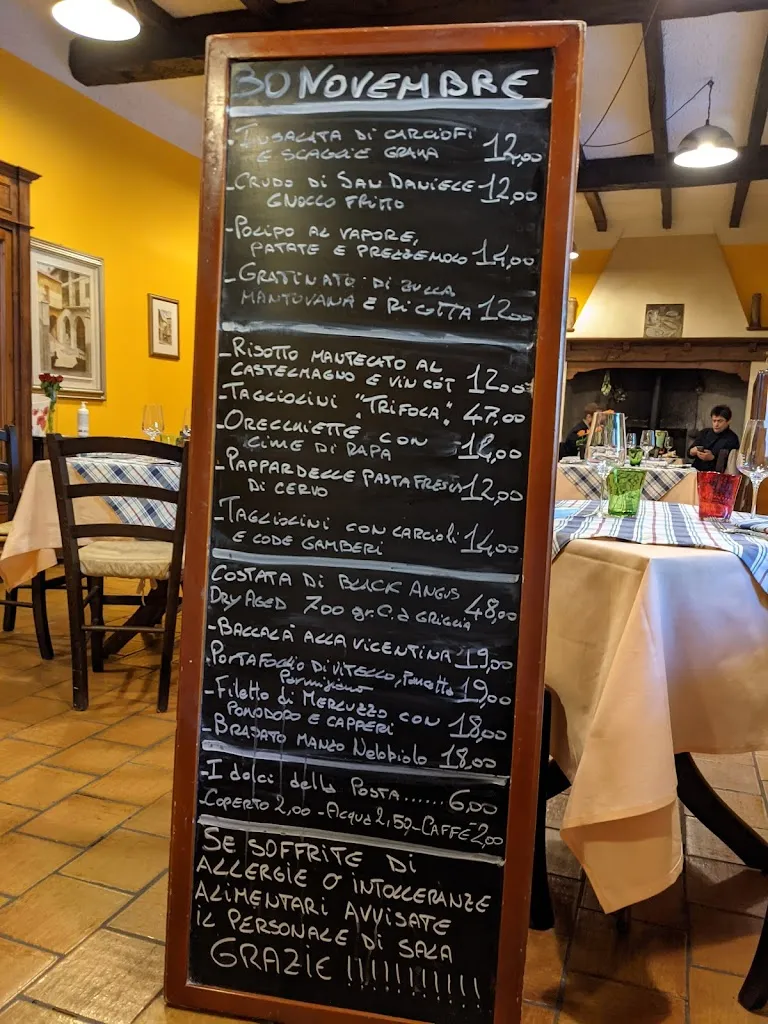 30 NOVEMBRE
- INSALATA DI CARCIOFI
E SCAGLIE GRANA 12,00
- CRUDO DI SAN DANIELE 12,00
GNOCCO FRITTO
- POLIPO AL VAPORE,
PATATE E PREZZEMOLO 14,00
- GRATTINATO DI ZUCCA
MANTOVANA E RICOTTA 12,00
- RISOTTO MANTECATO AL
CASTELMAGNO E VIN COT 12,00
- TAGLIOLINI "TRIFOLA" 47,00
- ORECCHIETTE CON
CIME DI RAPA 12,00
- PAPPARDELLE PASTA FRESCA
DI CERVO 12,00
- TAGLIOLINI CON CARCIOFI
E CODE GAMBERI 14,00
COSTATA DI BLACK ANGUS
DRY AGED 700 gr. C.d GRIGLIA 48,00
- BACCALÀ ALLA VICENTINA 19,00
- PORTAFOGLIO DI VITELLO, Pometto
Parmigiano 19,00
- FILETTO di MERLUZZO CON
POMODORO E CAPPERI 18,00
- BRASATO MANZO Nebbiolo 18,00
- I dolci della POSTA...... 6,00
- COPERTO 2,00 - ACQUA 2,50 - CAFFÈ 2,00
SE SOFFRITE DI
ALLERGIE O INTOLLERANZE
ALIMENTARI AVVISATE
IL PERSONALE DI SALA
GRAZIE !!!!!!!!!!!